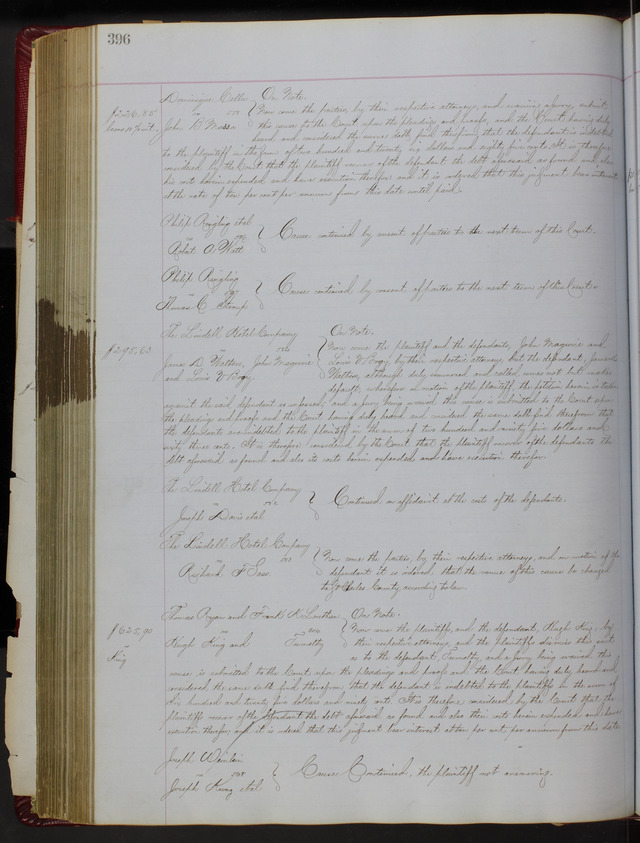 396
Dominique Calle On Note.
$226.85 vs Now come the parties, by their respective attorneys, and waiving a jury, submit
John B this cause to the Court upon the pleadings and proofs, and the Court having duly
heard and considered the same doth find therefrom that the defendant is indebted
to the plaintiff in the sum of two hundred and twenty six dollars and eighty five cents. It is therefore
considered by the Court that the plaintiff recover of the defendant the debt aforesaid as found and also
his costs herein expended and have execution therefor and it is ordered that this judgment bear interest
at the rate of ten per cent per annum from this date until paid.
Philip et al
vs Cause continued by consent of parties to the next term of this Court.
Robert A Watt
Philip
vs Cause continued by consent of parties to the next term of this Court.
Thomas C
The Lindell Hotel Company On Note.
$295.63 vs Now come the plaintiff and the defendants, John Maguire and
James D. John Maguire Louis V Bogy by their respective attorneys but the defendant, James D
and Louis V Bogy although duly summoned and called, comes not but makes
default, wherefore on motion of the plaintiff, the petition herein is taken
against the said defendant as confessed, and a jury being waived this cause is submitted to the Court upon
the pleadings and proofs and the Court having duly heard and considered the same doth find therefrom that
the defendants are indebted to the plaintiff in the sum of two hundred and ninety five dollars and
sixty three cents. It is therefore considered by the Court that the plaintiff recover of the defendants the
debt aforesaid as found and also its costs herein expended and have execution therefor.
The Lindell Hotel Company
vs Continued on affidavit at the costs of the defendants.
Joseph Davis et al
The Lindell Hotel Company
vs Now come the parties, by their respective attorneys, and on motion of the
Richard F defendant it is ordered that the venue of this cause be changed
to St Charles County according to law.
Thomas and Frank On Note.
$625.90 vs Now come the plaintiffs, and the defendant, Hugh King, by
Hugh King and their respective attorneys, and the plaintiffs dismiss this suit
vs King as to the defendant, and a jury being waived this
cause is submitted to the Court upon the pleadings and proofs and the Court having duly heard and
considered the same doth find therefrom that the defendant is indebted to the plaintiffs in the sum of
six hundred and twenty five dollars and ninety cents. It is therefore considered by the Court that the
plaintiffs recover of the defendant the debt aforesaid as found and also their costs herein expended and have
execution therefor and it is ordered that this judgment bear interest at ten per cent per annum from this date.
Joseph
vs Cause Continued, the plaintiff not answering.
Joseph King et al